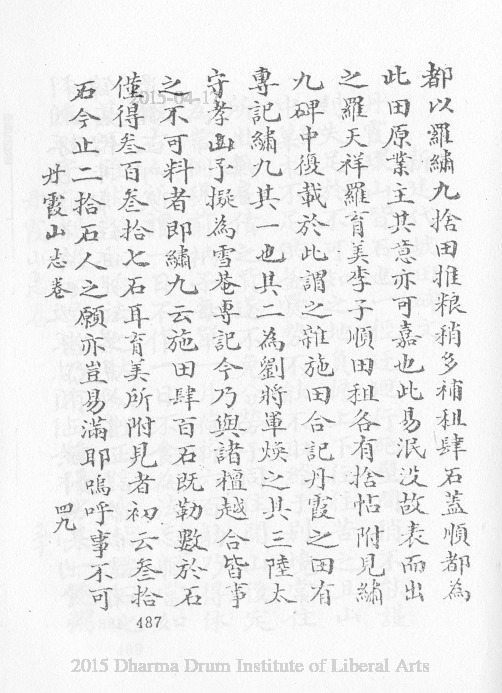 都以羅繡九捨田推粮稍多補租肆石蓋順都為
此田原業主其意亦可嘉也此易泯沒故表而出
之羅天祥羅育美李子順田租各有捨帖附見繡
九碑中復載於此謂之雜施田合記丹霞之田有
專記繡九其一也其二為劉將軍煥之其三陸太
守孝山予擬為雪菴專記今乃與諸檀越合皆事
之不可料者即繡九云施田肆百石既勒數於石
僅得叁百叁拾七石耳育美所附見者初云叁拾
石今止二拾石人之願亦豈易滿耶嗚呼事不可
丹霞山志卷
四九
487
2015-04-1
2015 Dharma Drum Institute of Liberal Arts